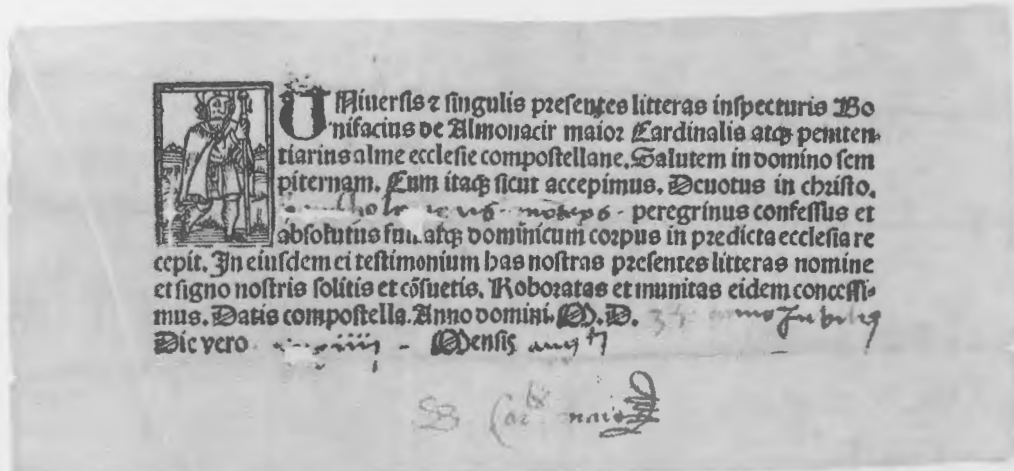 UNiuersis ⁊ singulis presentes litteras inspecturis Bo
nifacius de Almonacir maior Cardinalis atqꝫ peniten-
tiarius alme ecclesie compostellane. Salutem in domino sem
piternam. Cum itaqꝫ sicut accepimus. Deuotus in christo.
peregrinus confessus et
absolutus fuit atqꝫ dominicum corpus in predicta ecclesia re
cepit. In eiusdem ei testimonium has nostras presentes litteras nomine
et signo nostris solitis et cõsuetis. Roboratas et munitas eidem concessi-
mus. Datis compostella. Anno domini. M. D.
Die vero Mensis
B Car